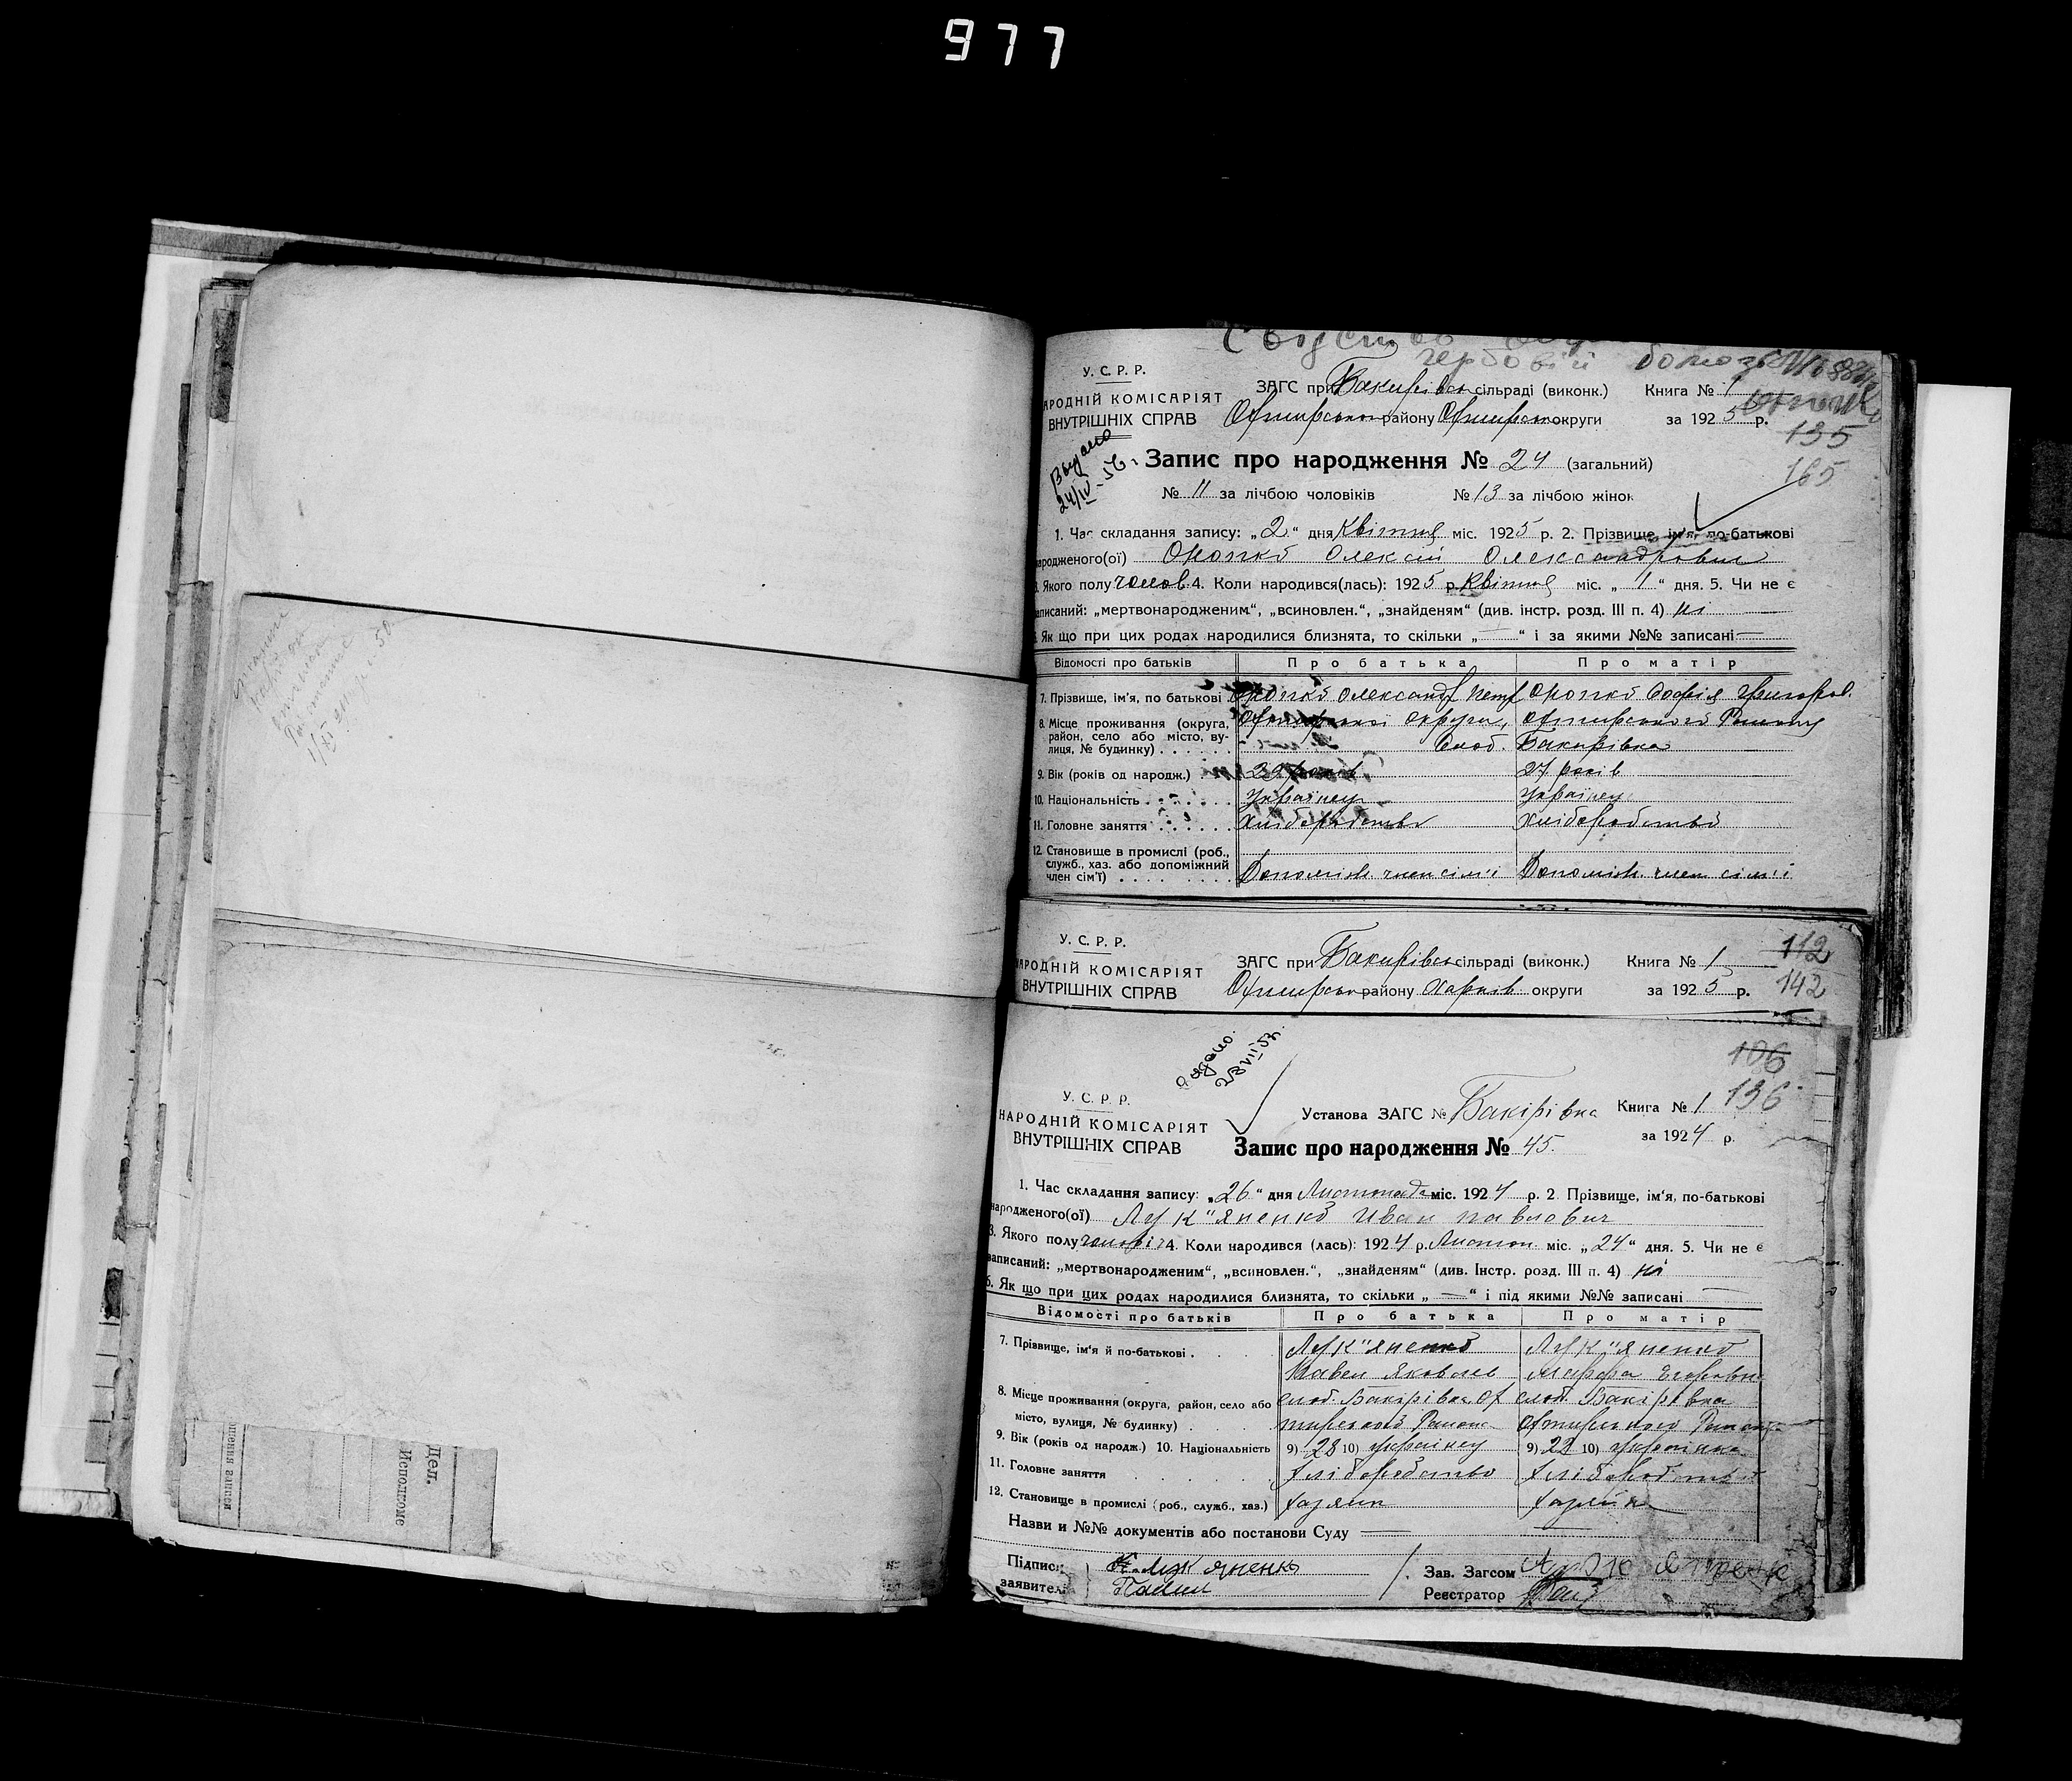 977
У. С. Р. Р.
АРОДНІЙ КОМІСАРІЯТ
ВНУТРІШНІХ СПРАВ
ЗАГС при Бакирівськ сільраді (виконк.) Книга № 1
Охтирського району Охтирськ округи за 1925 р.
135
165
Выдано
24/IV-56 г.
Запис про народження № 24 (загальний)
№ 11 за лічбою чоловіків № 13 за лічбою жінок
1. Час складання запису: „2“ дня Квітня міс. 1925 р. 2. Прізвище, ім'я, по-батькові
народженого(ої) Олексій Олександрович
3. Якого полу челов. 4. Коли народився(лась): 1925 р. Квітня міс. „1“ дня. 5. Чи не є
записаний: „мертвонародженим“, „всиновлен.“, „знайденям“ (див. інстр. розд. III п. 4) ні
Як що при цих родах народилися близнята, то скільки „—“ і за якими №№ записані —
Відомості про батьків Про батька Про матір
7. Прізвище, ім'я, по батькові Олександр Петр Софія Григоров.
8. Місце проживання (округа, Охтирської округи, Охтирського Району
район, село або місто, ву-
лиця, № будинку) Слоб. Бакирівка
9. Вік (років од народж.) 29 років 27 років
10. Національність Українец Українец
11. Головне заняття Хліборобство Хліборобство
12. Становище в промислі (роб.,
служб., хаз. або допоміжний
член сім'ї) Допоміж. член сім'ї Допоміж. член сім'ї
У. С. Р. Р.
АРОДНІЙ КОМІСАРІЯТ
ВНУТРІШНІХ СПРАВ
ЗАГС при Бакирівськ сільраді (виконк.) Книга № 1
Охтирськ району Харків округи за 1925 р.
112
142
106
136
У. С. Р. Р.
НАРОДНІЙ КОМІСАРІЯТ
ВНУТРІШНІХ СПРАВ
Установа ЗАГС № Бакірівка Книга № 1
за 1924 р.
Запис про народження № 45.
1. Час складання запису: „26“ дня Листопада міс. 1924 р. 2. Прізвище, ім'я, по-батькові
народженого(ої) Лук"яненко Иван Павлович
3. Якого полу чоловіч 4. Коли народився (лась): 1924 р. Листоп. міс. „24“ дня. 5. Чи не є
записаний: „мертвонародженим“, „всиновлен.“, „знайденям“ (див. Інстр. розд. III п. 4) ні
6. Як що при цих родах народилися близнята, то скільки „—“ і під якими №№ записані —
Відомості про батьків Про батька Про матір
7. Прізвище, ім'я й по-батькові Лук"яненко Лук"яненко
Павел Яковлев Марфа Егоровн
8. Місце проживання (округа, район, село або слоб. Бакірівка Ох слоб. Бакірівка
місто, вулиця, № будинку) тирського Района Охтирського Района
9. Вік (років од народж.) 10. Національність 9) 28 10) Українец 9) 22 10) Українка
11. Головне заняття Хліборобство Хліборобство
12. Становище в промислі (роб., служб., хаз.) Хазяин Хазяйка
Назви и №№ документів або постанови Суду —
Підписи Лукяненко
заявителі Павел
Зав. Загсом
Реєстратор
Дел.
Исполкоме